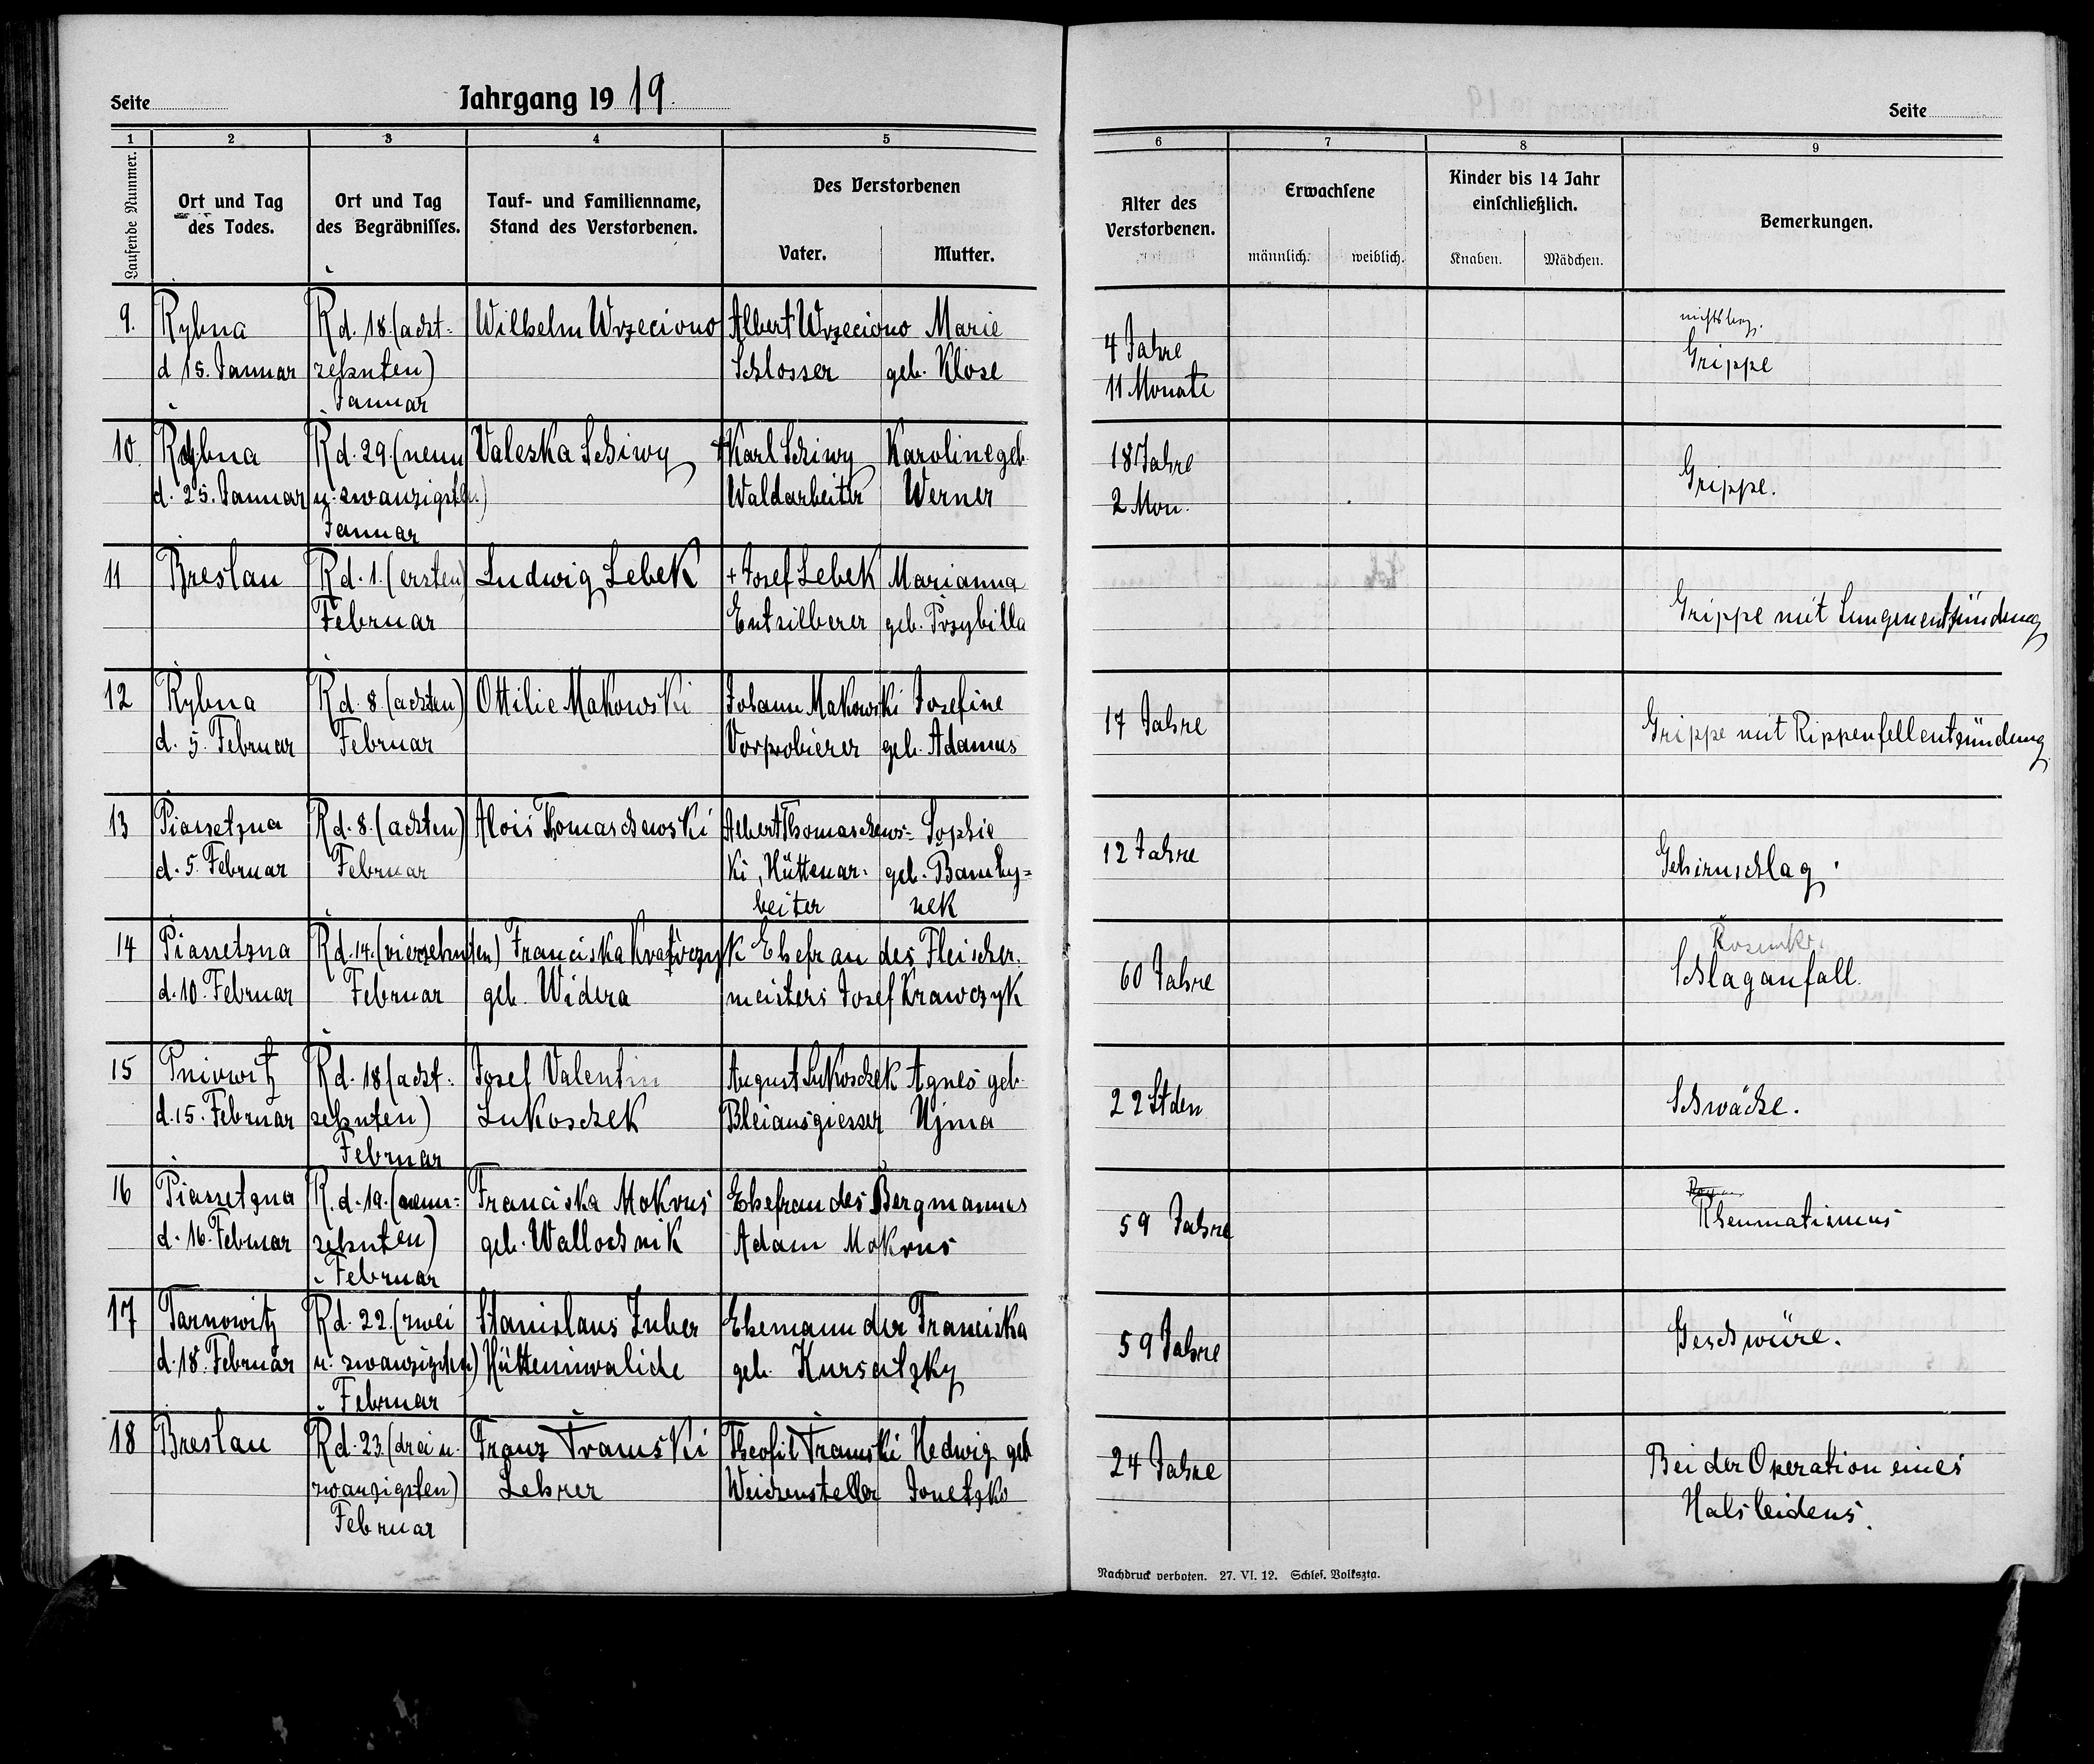 Seite
Jahrgang 1919.
1 2 3 4 5
Laufende Nummer.
Ort und Tag
des Todes.
Ort und Tag
des Begräbnisses.
Tauf- und Familienname,
Stand des Verstorbenen.
Des Verstorbenen
Vater. Mutter.
9. Rybna Rd. 18. (acht= Wilhelm Wrzeciono Albert Wrzeciono Marie
d 15. Januar zehnten) Schlosser geb. Klose
Januar
10. Rybna Rd. 29. (neun Valeska Schiwy +Karl Schiwy Karoline geb.
d. 25. Januar u. zwanzigsten) Waldarbeiter Werner
Januar
11 Breslau Rd. 1. (ersten) Ludwig Lebek +Josef Lebek Marianna
Februar Entsilberer geb. Przybilla
12 Rybna Rd. 8. (achten) Ottilie Makowski Johann Makowski Josefine
d. 5. Februar Februar Vorprobierer geb. Adamus
13 Piassetzna Rd. 8. (achten) Alois Thomaschewski Albert Thomaschews= Sophie
d. 5. Februar Februar ki, Hüttenar= geb. Bamby=
beiter nek
14 Piassetzna Rd. 14. (vierzehnten) Franciska Krawczyk Ehefrau des Fleischer=
d. 10. Februar Februar geb. Widera meisters Josef Krawczyk
15 Pniowitz Rd. 18 (acht= Josef Valentin August Lukoschek Agnes geb.
d. 15. Februar zehnten) Lukoschek Bleiausgiesser Ujma
Februar
16 Piassetzna R. d. 19. (neun= Franciska Mokrus Ehefrau des Bergmannes
d. 16. Februar zehnten) geb. Wallochnik Adam Mokrus
Februar
17 Tarnowitz Rd. 22. (zwei Stanislaus Zuber Ehemann der Franciska
d. 18. Februar u. zwanzigsten) Hütteninvalide geb. Kursatzky
Februar
18 Breslau Rd. 23. (drei u. Franz Tramski Theofil Tramski Hedwig geb
zwanzigsten) Lehrer Weichensteller Jonetzko
Februar
Seite
6 7 8 9
Alter des
Verstorbenen.
Erwachsene
männlich. weiblich.
Kinder bis 14 Jahr
einschließlich.
Knaben. Mädchen.
Bemerkungen.
4 Jahre Grippe
11 Monate
18 Jahre Grippe.
2 Mon.
Grippe mit Lungenentzündung
17 Jahre Grippe mit Rippenfellentzündung
12 Jahre Gehirnschlag.
60 Jahre Schlaganfall.
22 Stden Schwäche.
59 Jahre Rheumatismus
59 Jahre Geschwüre.
24 Jahre Bei der Operation eines
Halsleidens.
Nachdruck verboten. 27. VI. 12. Schles. Volkszta.